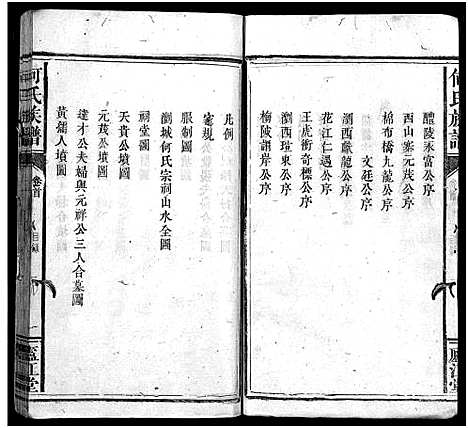 何氏族譜
醴陵永富公序
西山寨元茂公序
棉布橋九龍公序
文廷公序
瀏西獻龍公序
花江仁遇公序
王虎衝奇標公序
瀏西璀東公序
榆陂謌岸公序
凡例
家規
服制圖
瀏城何氏宗祠山水全圖
祠堂圖
天貴公墳圖
元茂公墳圖
達才公夫婦與元祥公三人合墓圖
黃孺人墳圖
何氏族譜
卷首
目錄
一
廬江堂